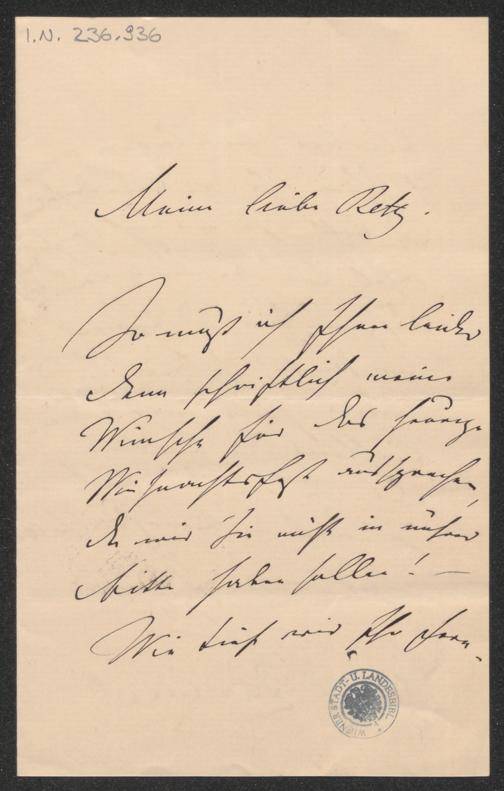 I.N. 236.936
Meine liebe Betty.
So muß ich Ihnen leider
denn schriftlich meine
Wünsche für das heurige
Weihnachtsfest aussprechen,
da wir Sie nicht in unsrer
Mitte haben sollen! —
Wie tief wir Ihr Fern-
WIENER STADT- U. LANDESBIBL.